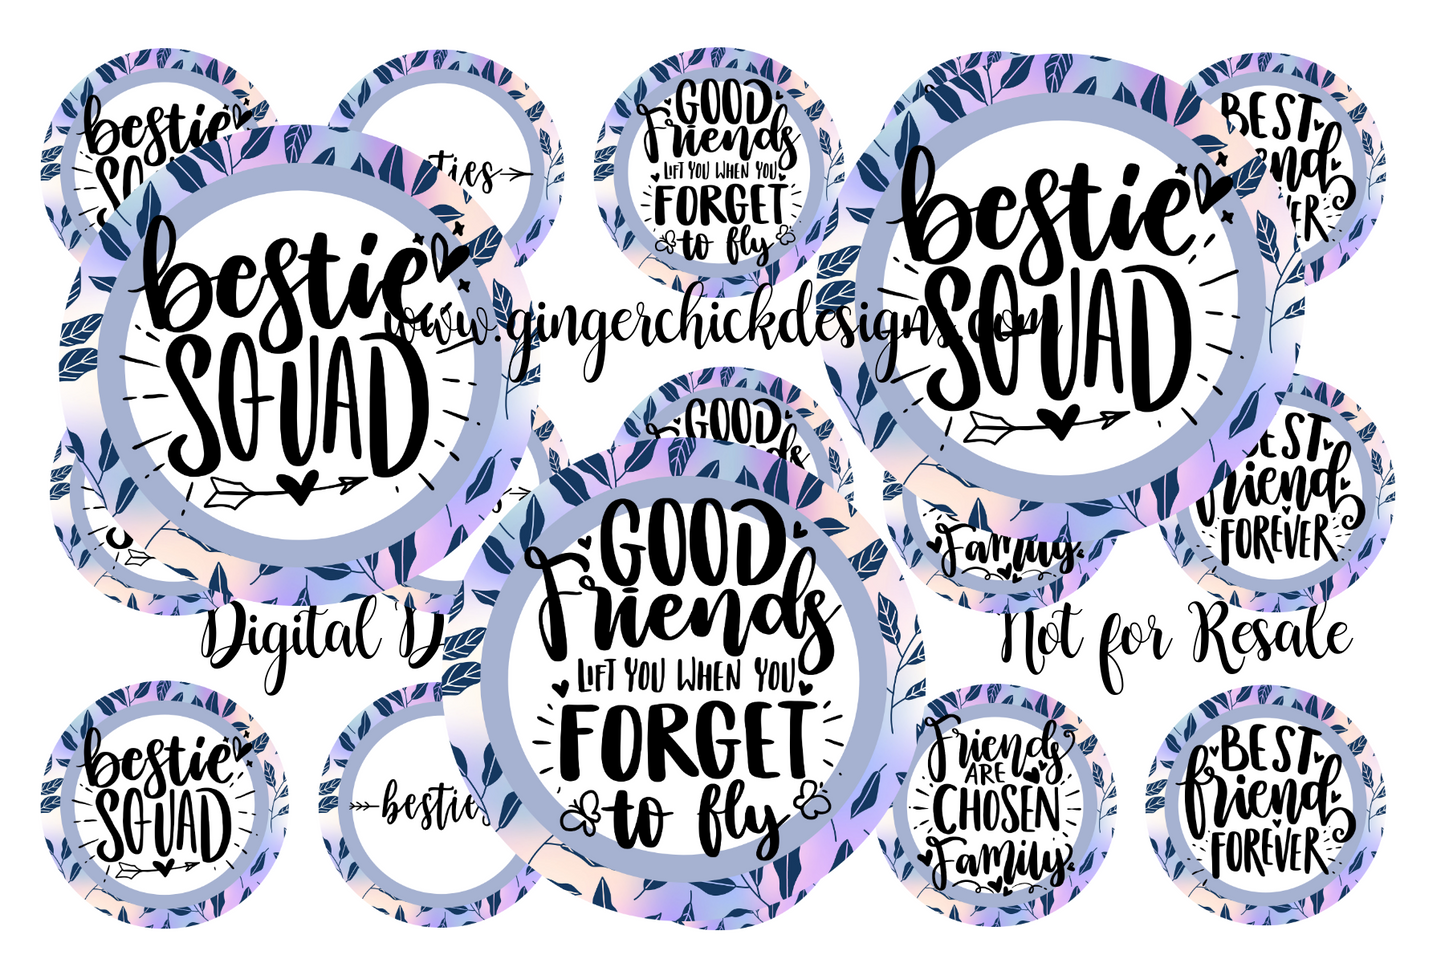 bestie
SQ
ties
GOOD
Friends
LIFT YOU WHEN YOU
FORGET
to fly
BEST
iend
ER
bestie
SQUAD
bestie
SQUAD
www.gingerchickdesigns.com
GOOD
ds
BEST
friend
FOREVER
Family
GOOD
Friends
LIFT YOU WHEN YOU
FORGET
to fly
Digital D
Not for Resale
bestie
SQUAD
besties
Friends
ARE
CHOSEN
Family
BEST
friend
FOREVER